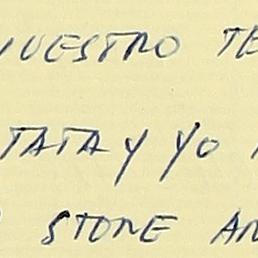 NUESTRO TE
TATA Y YO
STONE AN